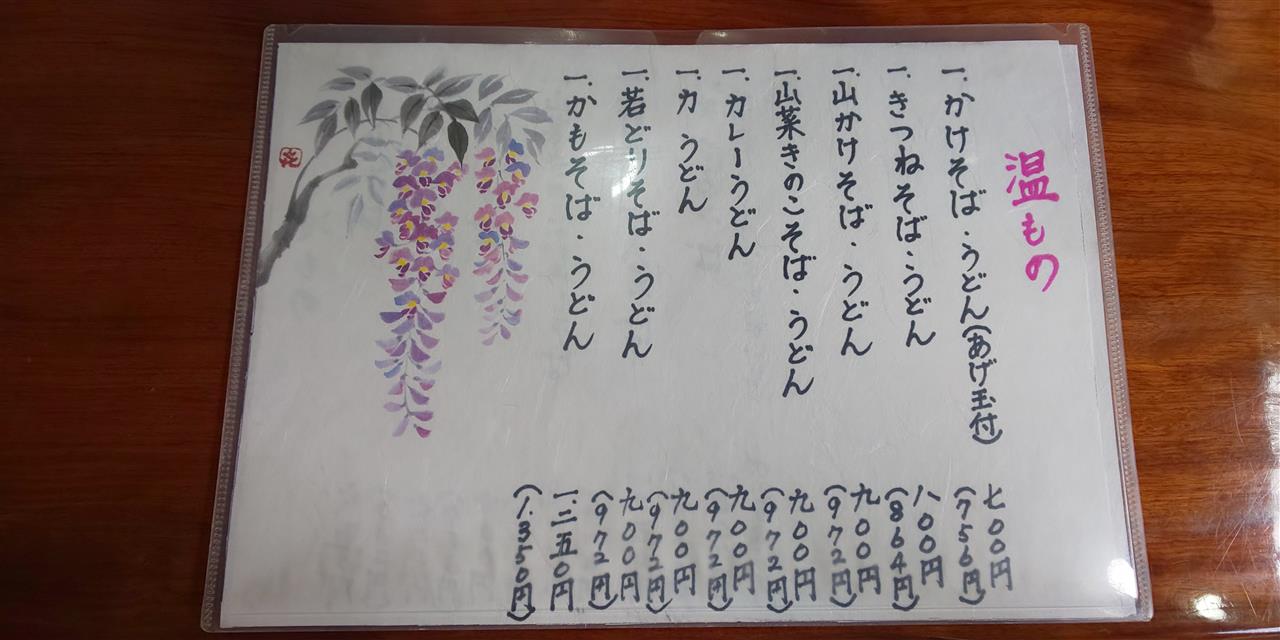 温もの
一.かけそば・うどん(あげ玉付)
七〇〇円
(756円)
一.きつねそば・うどん
八〇〇円
(864円)
一.山かけそば・うどん
九〇〇円
(972円)
一.山菜きのこそば・うどん
九〇〇円
(972円)
一.カレーうどん
九〇〇円
(972円)
一.力 うどん
九〇〇円
(972円)
一.若どりそば・うどん
九〇〇円
(972円)
一.かもそば・うどん
一.二五〇円
(1.350円)